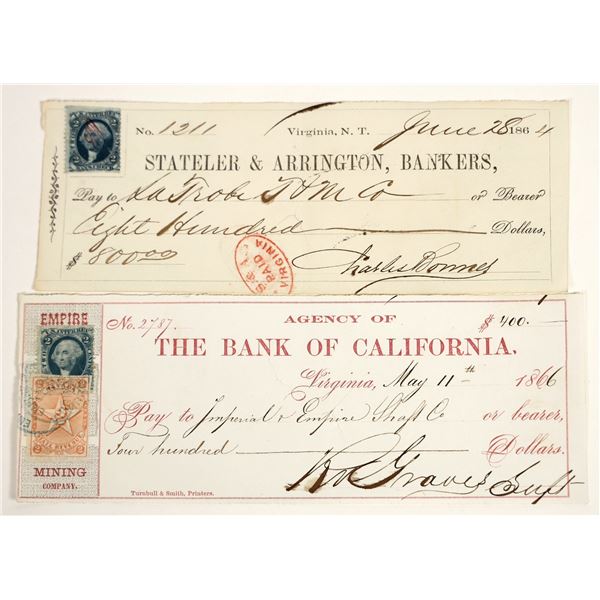 No. 1211 Virginia, N. T. June 28 1864
STATELER & ARRINGTON, BANKERS,
Pay to La Trobe T & M Co or Bearer
Eight Hundred Dollars,
$ 800 00
PAID
VIRGINIA
Charles Bonner
EMPIRE
No. 2787 AGENCY OF $ 400.
THE BANK OF CALIFORNIA.
Virginia, May 11th 1866
Pay to Imperial & Empire Shaft Co or bearer,
Four hundred Dollars.
Graves Supt
MINING
COMPANY.
Turnbull & Smith, Printers.